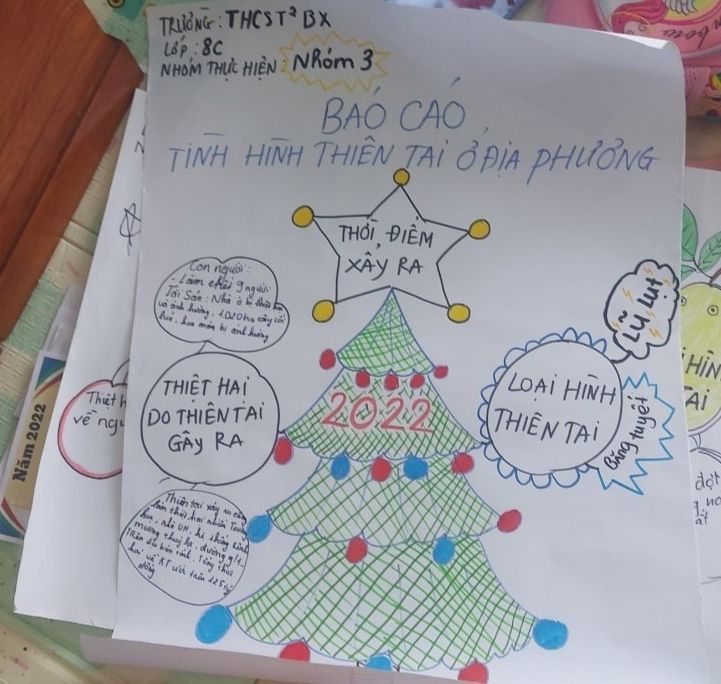 TRƯỜNG: THCS T² BX
LỚP: 8C
NHÓM THỰC HIỆN: Nhóm 3
BAÓ CAÓ
TÌNH HÌNH THIÊN TAI Ở ĐỊA PHƯƠNG
THỜI ĐIỂM
XÂY RA
Con người:
- Làm chết 9 người
Tài Sản: Nhà ở bị thiệt hại
và ảnh hưởng. 1020 ha cây cối
hoa màu bị ảnh hưởng
THIỆT HAI
DO THIÊN TAI
GÂY RA
Thiên tai xảy ra
làm thiệt hại nhiều Trường
học, nhà VH, hệ thống kênh
mương thuỷ lợi, đường
Trên địa bàn tỉnh. Tổng thiệt
hại về KT ước trên 125 tỷ
đồng
2022
LOẠI HÌNH
THIÊN TAI
LŨ LỤT
Băng tuyết
Năm 2022
Thiệt h
về ngư
HÌN
AI